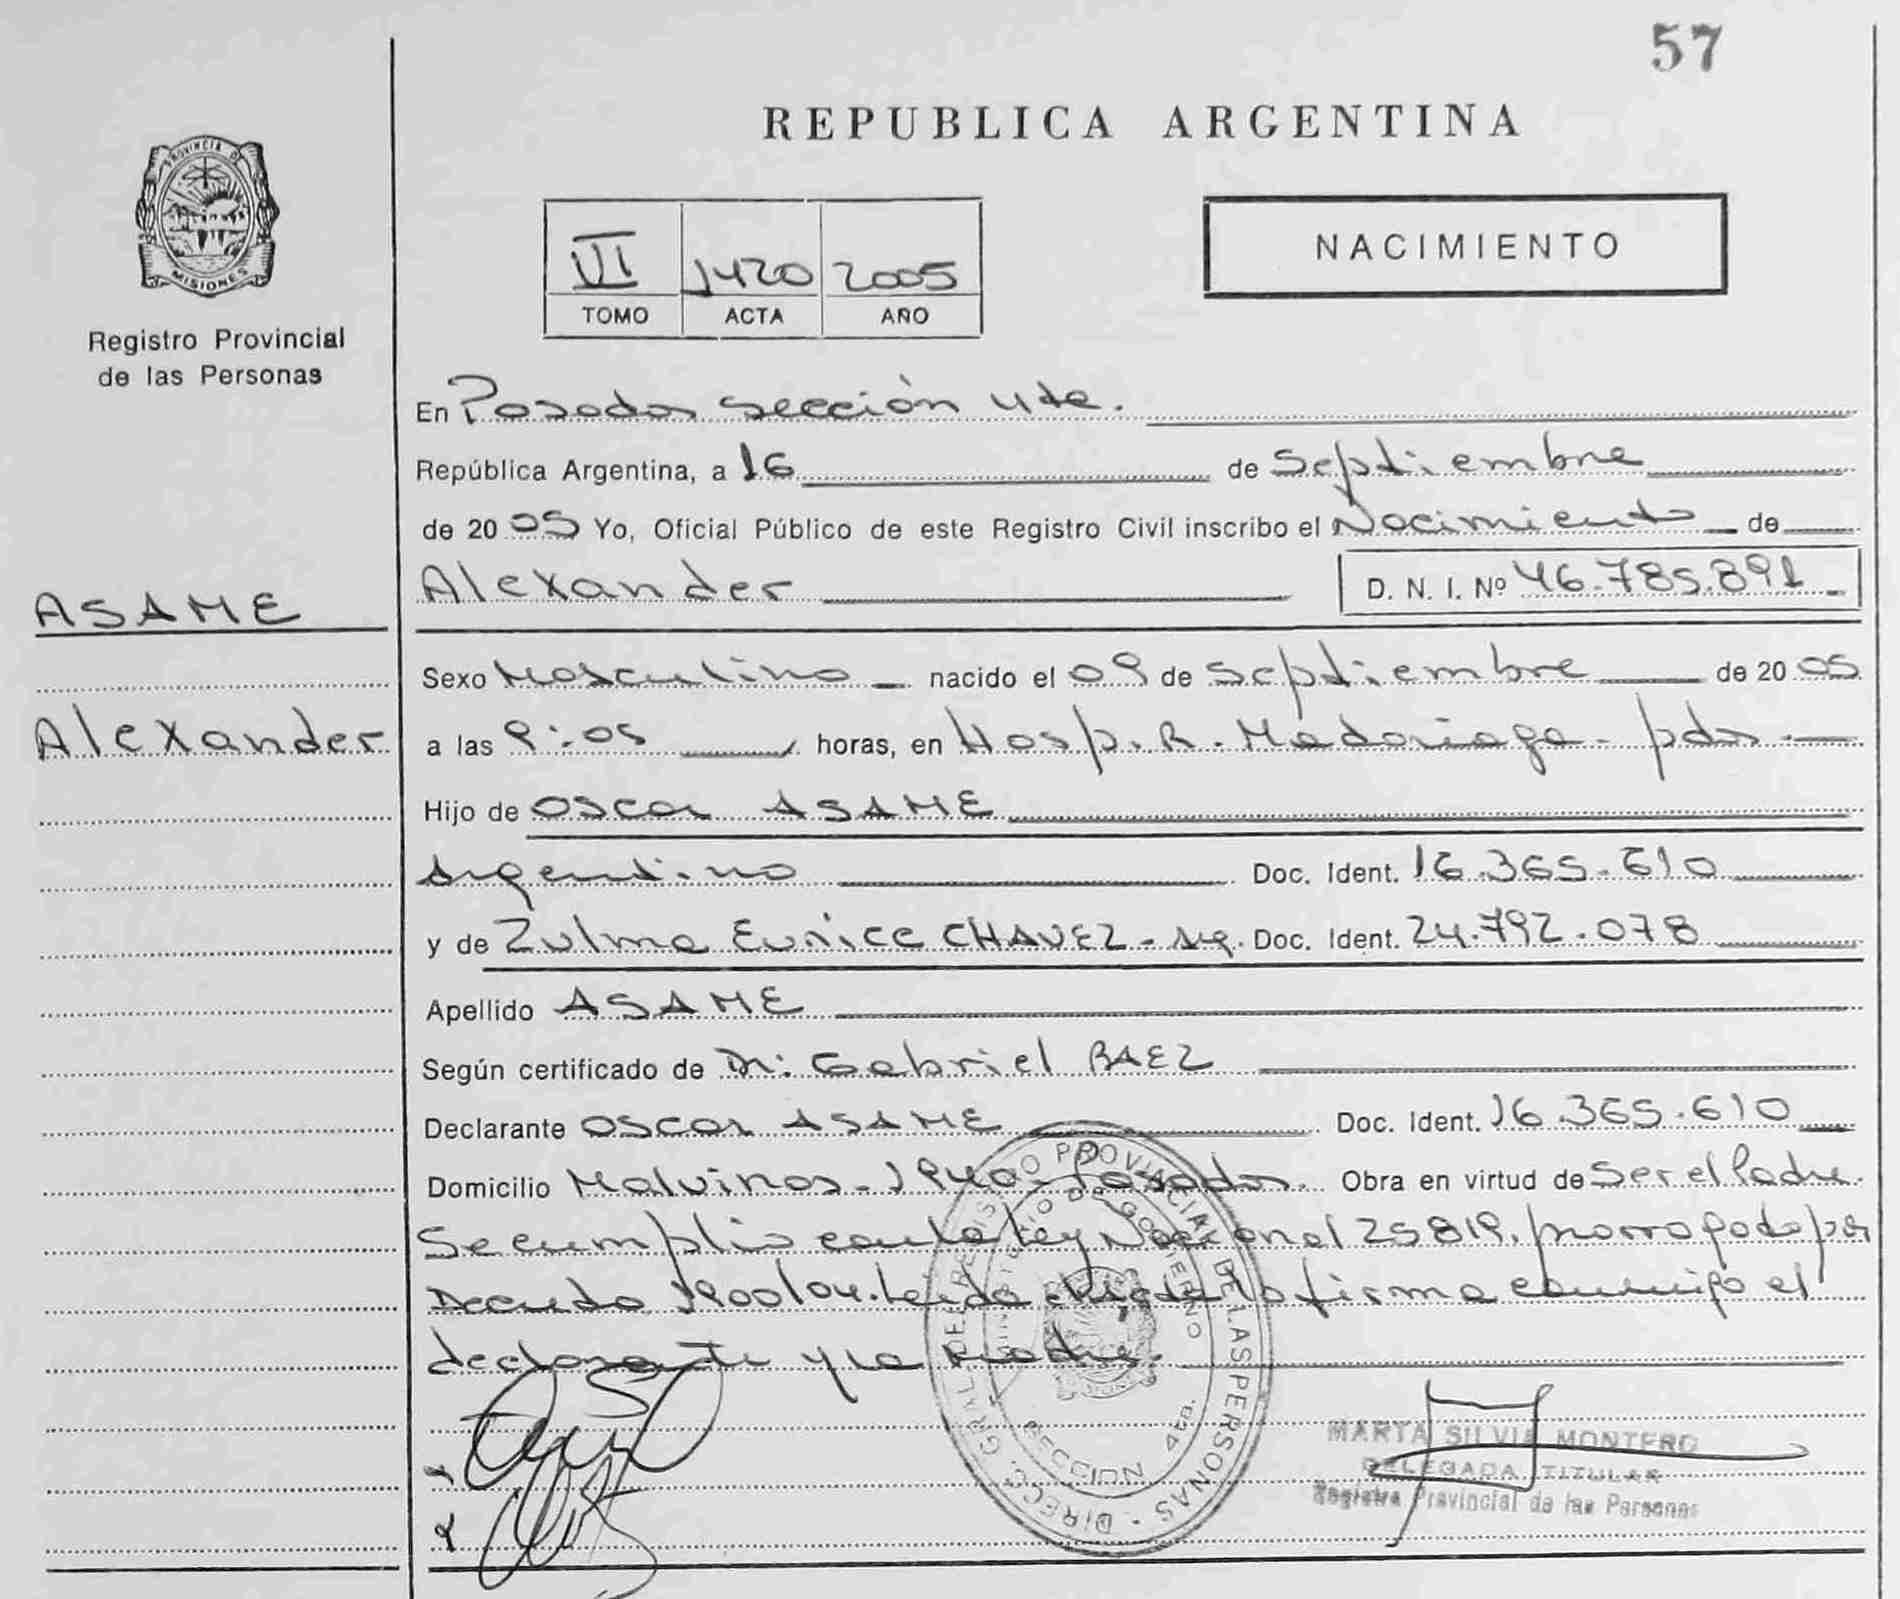 57
REPUBLICA ARGENTINA
PROVINCIA DE
MISIONES
Registro Provincial
de las Personas
VI 1420 2005
TOMO ACTA AÑO
NACIMIENTO
En Posadas sección 4ta.
República Argentina, a 16 de Septiembre
de 2005 Yo, Oficial Público de este Registro Civil inscribo el Nacimiento de
ASAME
Alexander
Alexander D. N. I. Nº 46.785.891
Sexo Masculino nacido el 09 de Septiembre de 2005
a las 9:05 horas, en Hosp. R. Madariaga - pdas.
Hijo de Oscar ASAME
Argentino Doc. Ident. 16.365.610
y de Zulma Eunice CHAVEZ - Arg. Doc. Ident. 24.792.078
Apellido ASAME
Según certificado de Dr: Gabriel BAEZ
Declarante Oscar ASAME Doc. Ident. 16.365.610
Domicilio Malvinas - 1940 - Posadas. Obra en virtud de Ser el Padre.
Se cumplio con la Ley Nacional 25819, prorrogado por
Decreto 1900/04. Leida el Acta la firma conmigo el
declarante y la Madre.
DIRECC. GRAL. DEL REGISTRO PROVINCIAL DE LAS PERSONAS
MINISTERIO DE GOBIERNO
SECCION 4ta.
MARTA SILVIA MONTERO
DELEGADA TITULAR
Registro Provincial de las Personas